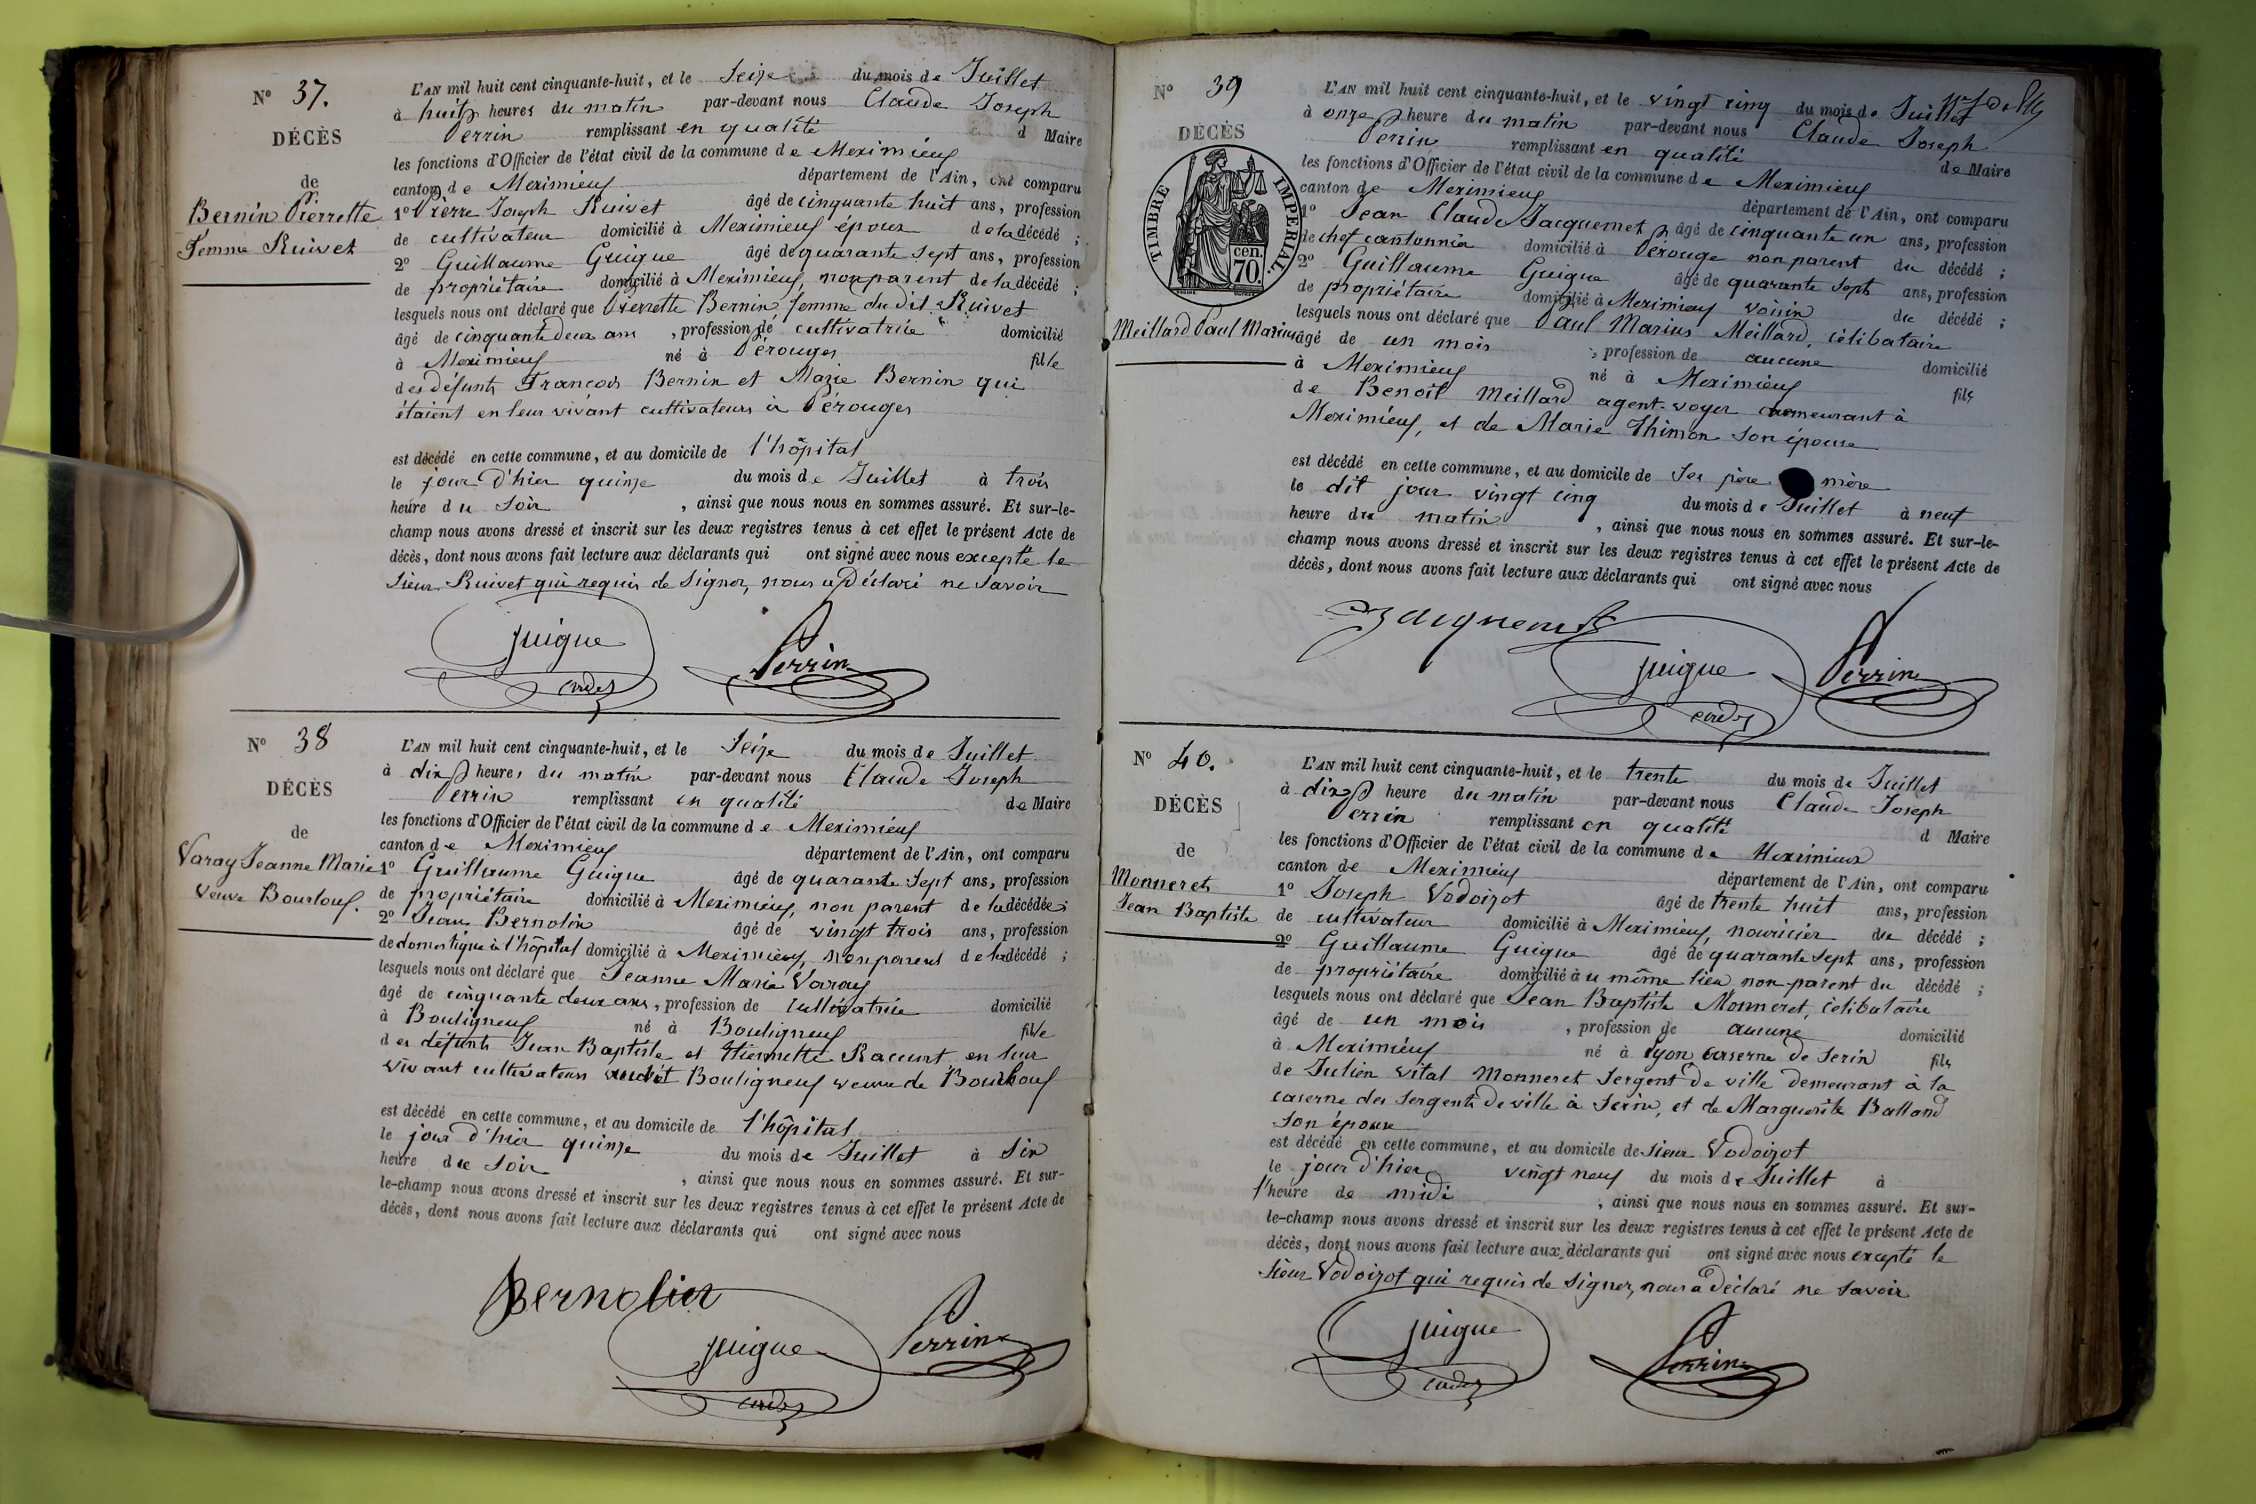 N° 37.
DÉCÈS
de
Bernin Pierrette
Femme Ruivet
L'AN mil huit cent cinquante-huit, et le Seize du mois de Juillet
à huit heures du matin par-devant nous Claude Joseph
Perrin remplissant en qualité d Maire
les fonctions d'Officier de l'état civil de la commune de Meximieux
canton de Meximieux département de l'Ain, ont comparu
1° Pierre Joseph Ruivet âgé de cinquante huit ans, profession
de cultivateur domicilié à Meximieux époux de la décédé ;
2° Guillaume Guigue âgé de quarante sept ans, profession
de propriétaire domicilié à Meximieux, non parent de la décédé ;
lesquels nous ont déclaré que Pierrette Bernin, femme du dit Ruivet
âgé de cinquante deux ans , profession de cultivatrice domicilié
à Meximieux né à Pérouges fille
des défunts François Bernin et Marie Bernin qui
étaient en leur vivant cultivateurs à Pérouges
est décédé en cette commune, et au domicile de l'hôpital
le jour d'hier quinze du mois de Juillet à trois
heure du soir , ainsi que nous nous en sommes assuré. Et sur-le-
champ nous avons dressé et inscrit sur les deux registres tenus à cet effet le présent Acte de
décès, dont nous avons fait lecture aux déclarants qui ont signé avec nous excepté le
sieur Ruivet qui requis de signer, nous a déclaré ne savoir
Guigue Perrin
N° 38
DÉCÈS
de
Varay Jeanne Marie
veuve Bourlouf.
L'AN mil huit cent cinquante-huit, et le Seize du mois de Juillet
à dix heures du matin par-devant nous Claude Joseph
Perrin remplissant en qualité de Maire
les fonctions d'Officier de l'état civil de la commune de Meximieux
canton de Meximieux département de l'Ain, ont comparu
1° Guillaume Guigue âgé de quarante sept ans, profession
de propriétaire domicilié à Meximieux, non parent de la décédée ;
2° Jean Bernolin âgé de vingt trois ans, profession
de domestique à l'hôpital domicilié à Meximieux, non parent de la décédé ;
lesquels nous ont déclaré que Jeanne Marie Varay
âgé de cinquante deux ans , profession de cultivatrice domicilié
à Bouligneux né à Bouligneux fille
des défunts Jean Baptiste et Etiennette Racurt en leur
vivant cultivateurs Bouligneux veuve de
est décédé en cette commune, et au domicile de l'hôpital
le jour d'hier quinze du mois de Juillet à Six
heure du soir , ainsi que nous nous en sommes assuré. Et sur-
le-champ nous avons dressé et inscrit sur les deux registres tenus à cet effet le présent Acte de
décès, dont nous avons fait lecture aux déclarants qui ont signé avec nous
Bernolin
Guigue Perrin
N° 39
DÉCÈS
TIMBRE IMPÉRIAL.
70. cen.
Meillard Paul Marius
L'AN mil huit cent cinquante-huit, et le vingt cinq du mois de Juillet
à onze heure du matin par-devant nous Claude Joseph
Perrin remplissant en qualité de Maire
les fonctions d'Officier de l'état civil de la commune de Meximieux
canton de Meximieux département de l'Ain, ont comparu
1° Jean Claude Jacquemet âgé de cinquante un ans, profession
de chef cantonnier domicilié à Pérouge non parent du décédé ;
2° Guillaume Guigue âgé de quarante sept ans, profession
de propriétaire domicilié à Meximieux voisin du décédé ;
lesquels nous ont déclaré que Paul Marius Meillard, célibataire
âgé de un mois , profession de aucune domicilié
à Meximieux né à Meximieux fils
de Benoit Meillard agent-voyer demeurant à
Meximieux, et de Marie Thimon son épouse
est décédé en cette commune, et au domicile de ses père mère
le dit jour vingt cinq du mois de Juillet à neuf
heure du matin , ainsi que nous nous en sommes assuré. Et sur-le-
champ nous avons dressé et inscrit sur les deux registres tenus à cet effet le présent Acte de
décès, dont nous avons fait lecture aux déclarants qui ont signé avec nous
Guigue Perrin
N° 40.
DÉCÈS
de
Monneret
Jean Baptiste
L'AN mil huit cent cinquante-huit, et le trente du mois de Juillet
à dix heure du matin par-devant nous Claude Joseph
Perrin remplissant en qualité d Maire
les fonctions d'Officier de l'état civil de la commune de Meximieux
canton de Meximieux département de l'Ain, ont comparu
1° Joseph Vodoizot âgé de trente huit ans, profession
de cultivateur domicilié à Meximieux, nouricier du décédé ;
2° Guillaume Guigue âgé de quarante sept ans, profession
de propriétaire domicilié à u même lieu non parent du décédé ;
lesquels nous ont déclaré que Jean Baptiste Monneret, célibataire
âgé de un mois , profession de aucune domicilié
à Meximieux né à Lyon caserne de Serin fils
de Julien Vital Monneret Sergent de ville demeurant à la
caserne des Sergents de ville à Serin, et de Marguerite Balland
son épouse
est décédé en cette commune, et au domicile de sieur Vodoizot
le jour d'hier vingt neuf du mois de Juillet à
l'heure de midi , ainsi que nous nous en sommes assuré. Et sur-
le-champ nous avons dressé et inscrit sur les deux registres tenus à cet effet le présent Acte de
décès, dont nous avons fait lecture aux déclarants qui ont signé avec nous excepté le
sieur Vodoizot qui requis de signer, nous a déclaré ne savoir
Guigue Perrin